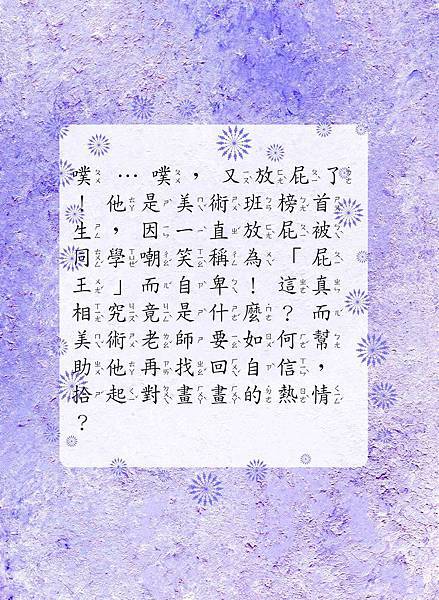 噗…噗，又放屁了
！他是美術班榜首
生，因一直放屁被
同學嘲笑稱為「屁
王」而自卑！這真
相究竟是什麼？而
美術老師要如何幫
助他再找回自信，
拾起對畫畫的熱情
？